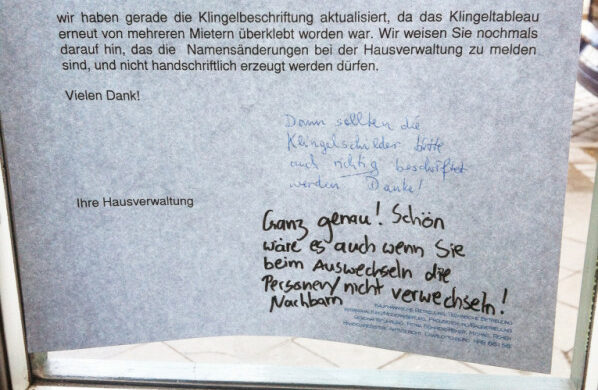 wir haben gerade die Klingelbeschriftung aktualisiert, da das Klingeltableau
erneut von mehreren Mietern überklebt worden war. Wir weisen Sie nochmals
darauf hin, das die Namensänderungen bei der Hausverwaltung zu melden
sind, und nicht handschriftlich erzeugt werden dürfen.
Vielen Dank!
Dann sollten die
Klingelschilder bitte
auch richtig beschriftet
werden Danke!
Ihre Hausverwaltung
Ganz genau! Schön
wäre es auch wenn Sie
beim Auswechseln die
Personen/ nicht verwechseln!
Nachbarn
Kaufmännische Betreuung, Technische Betreuung